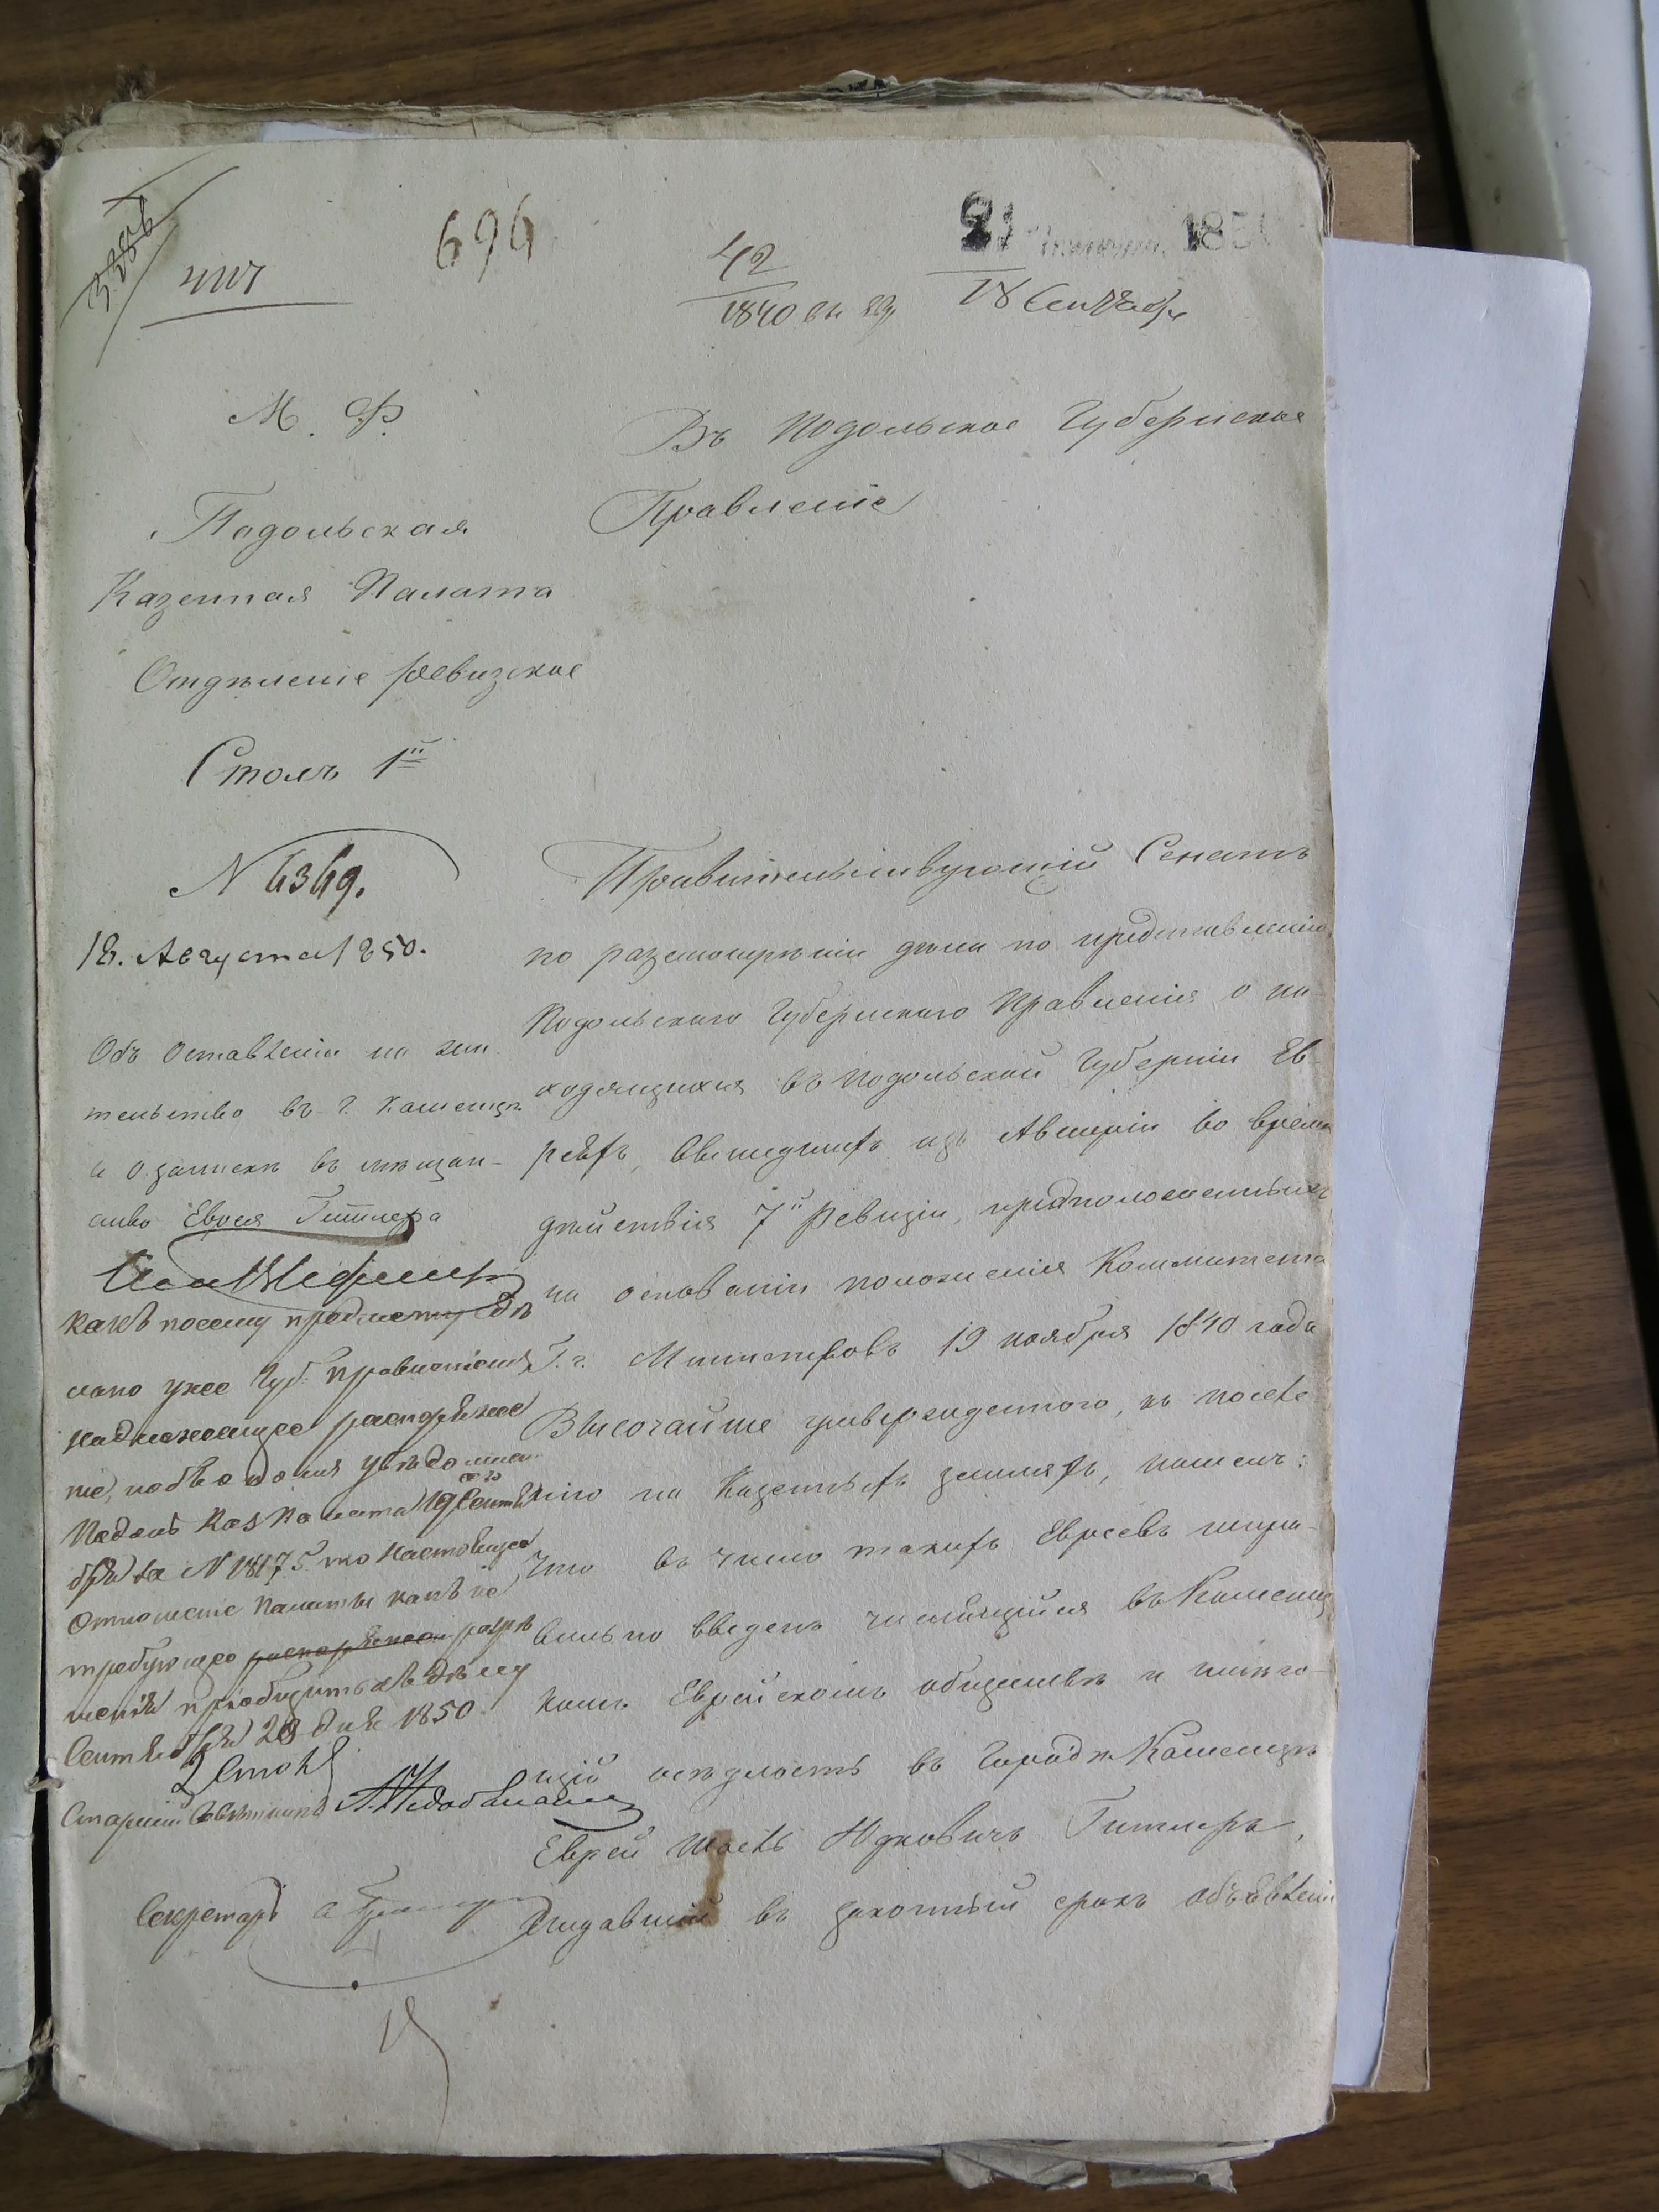 696
42
1840
18 Сентября
М. Ф.
Подольская
Казенная Палата
Отдѣленіе Ревизское
Столъ 1й
N 6369.
18. Августа 1850.
Объ оставленіи на жи-
тельство въ г. Каменцѣ
и о запискѣ въ мѣщан-
ство Еврея Гитлера
Какъ посему предмету сдѣ
лано уже Губ. Правленіемъ
надлежащее распоряже
ніе,
Подол. Каз. Палата 19 Сентя
бря за N 18175 то настоящее
отношеніе Палаты какъ не
требующее разрѣ
шенія пріобщить къ дѣлу
Сентября 20 дня 1850
2 Столъ
Старшій Совѣтникъ
Секретарь
Въ Подольское Губернское
Правленіе
Правительствующій Сенатъ
по разсмотрѣніи дѣла по представленію
Подольскаго Губернскаго Правленія о на-
ходящихся въ Подольской Губерніи Ев-
реяхъ, вышедшихъ изъ Австріи во время
дѣйствія 7й Ревизіи, предположенныхъ
на основаніи положенія Коммитета
Г.г. Министровъ 19 ноября 1840 года
Высочайше утвержденного, къ поселе-
нію на Казенныхъ земляхъ, нашелъ:
Что въ число такихъ Евреевъ непра-
вильно введенъ числящійся въ Каменец
комъ Еврейскомъ обществѣ и имѣю-
щій осѣдлость въ Городѣ Каменцѣ
Еврей Юдковичъ Гитлеръ,
подавшій въ законный срокъ объявленіе